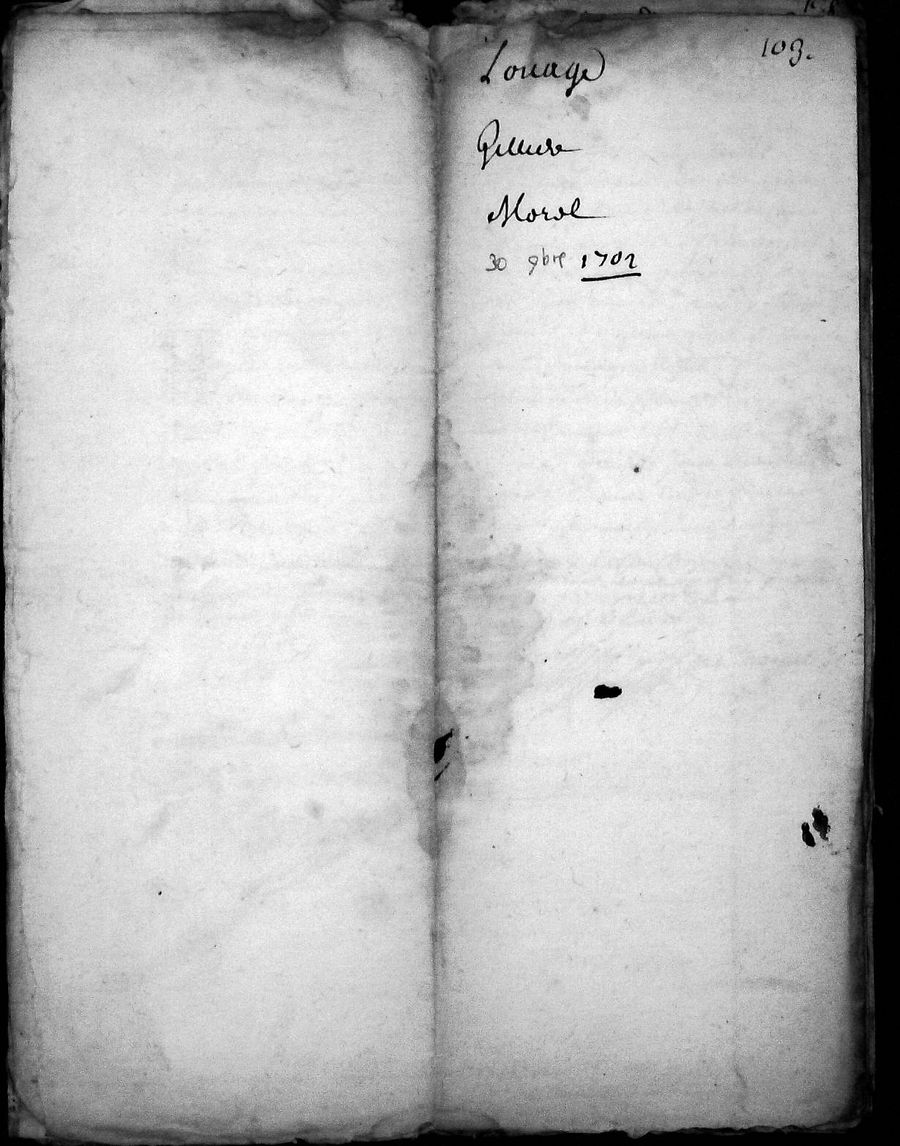 103.
Louage
Morel
30 9bre 1702